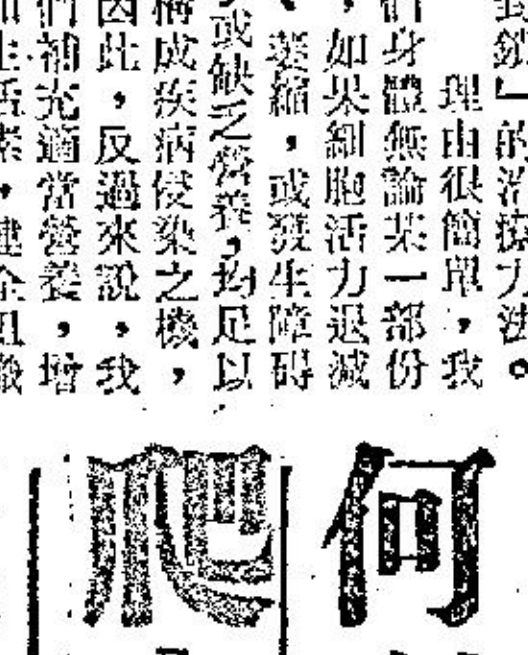 的治療力法。
理由很簡單，我
身體無論某一部份
，如果細胞活力退減
、萎縮，或發生障碍
或缺乏營養，均足以
構成疾病侵染之機，
因此，反過來說，我
們補充適當營養，增
，健全組
何
爬